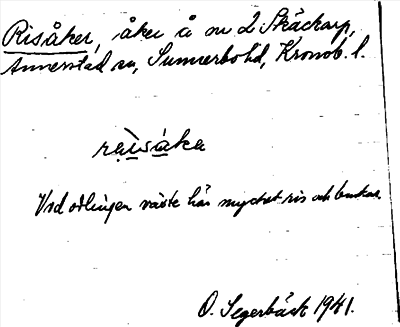 Risåker, åker å nr 2 Skäckarp,
Annerstad sn, Sunnerbo hd, Kronob. l.
ra̤i̊såka
Vid odlingen växte här mycket ris och buskar.
O. Segerbäck 1941.